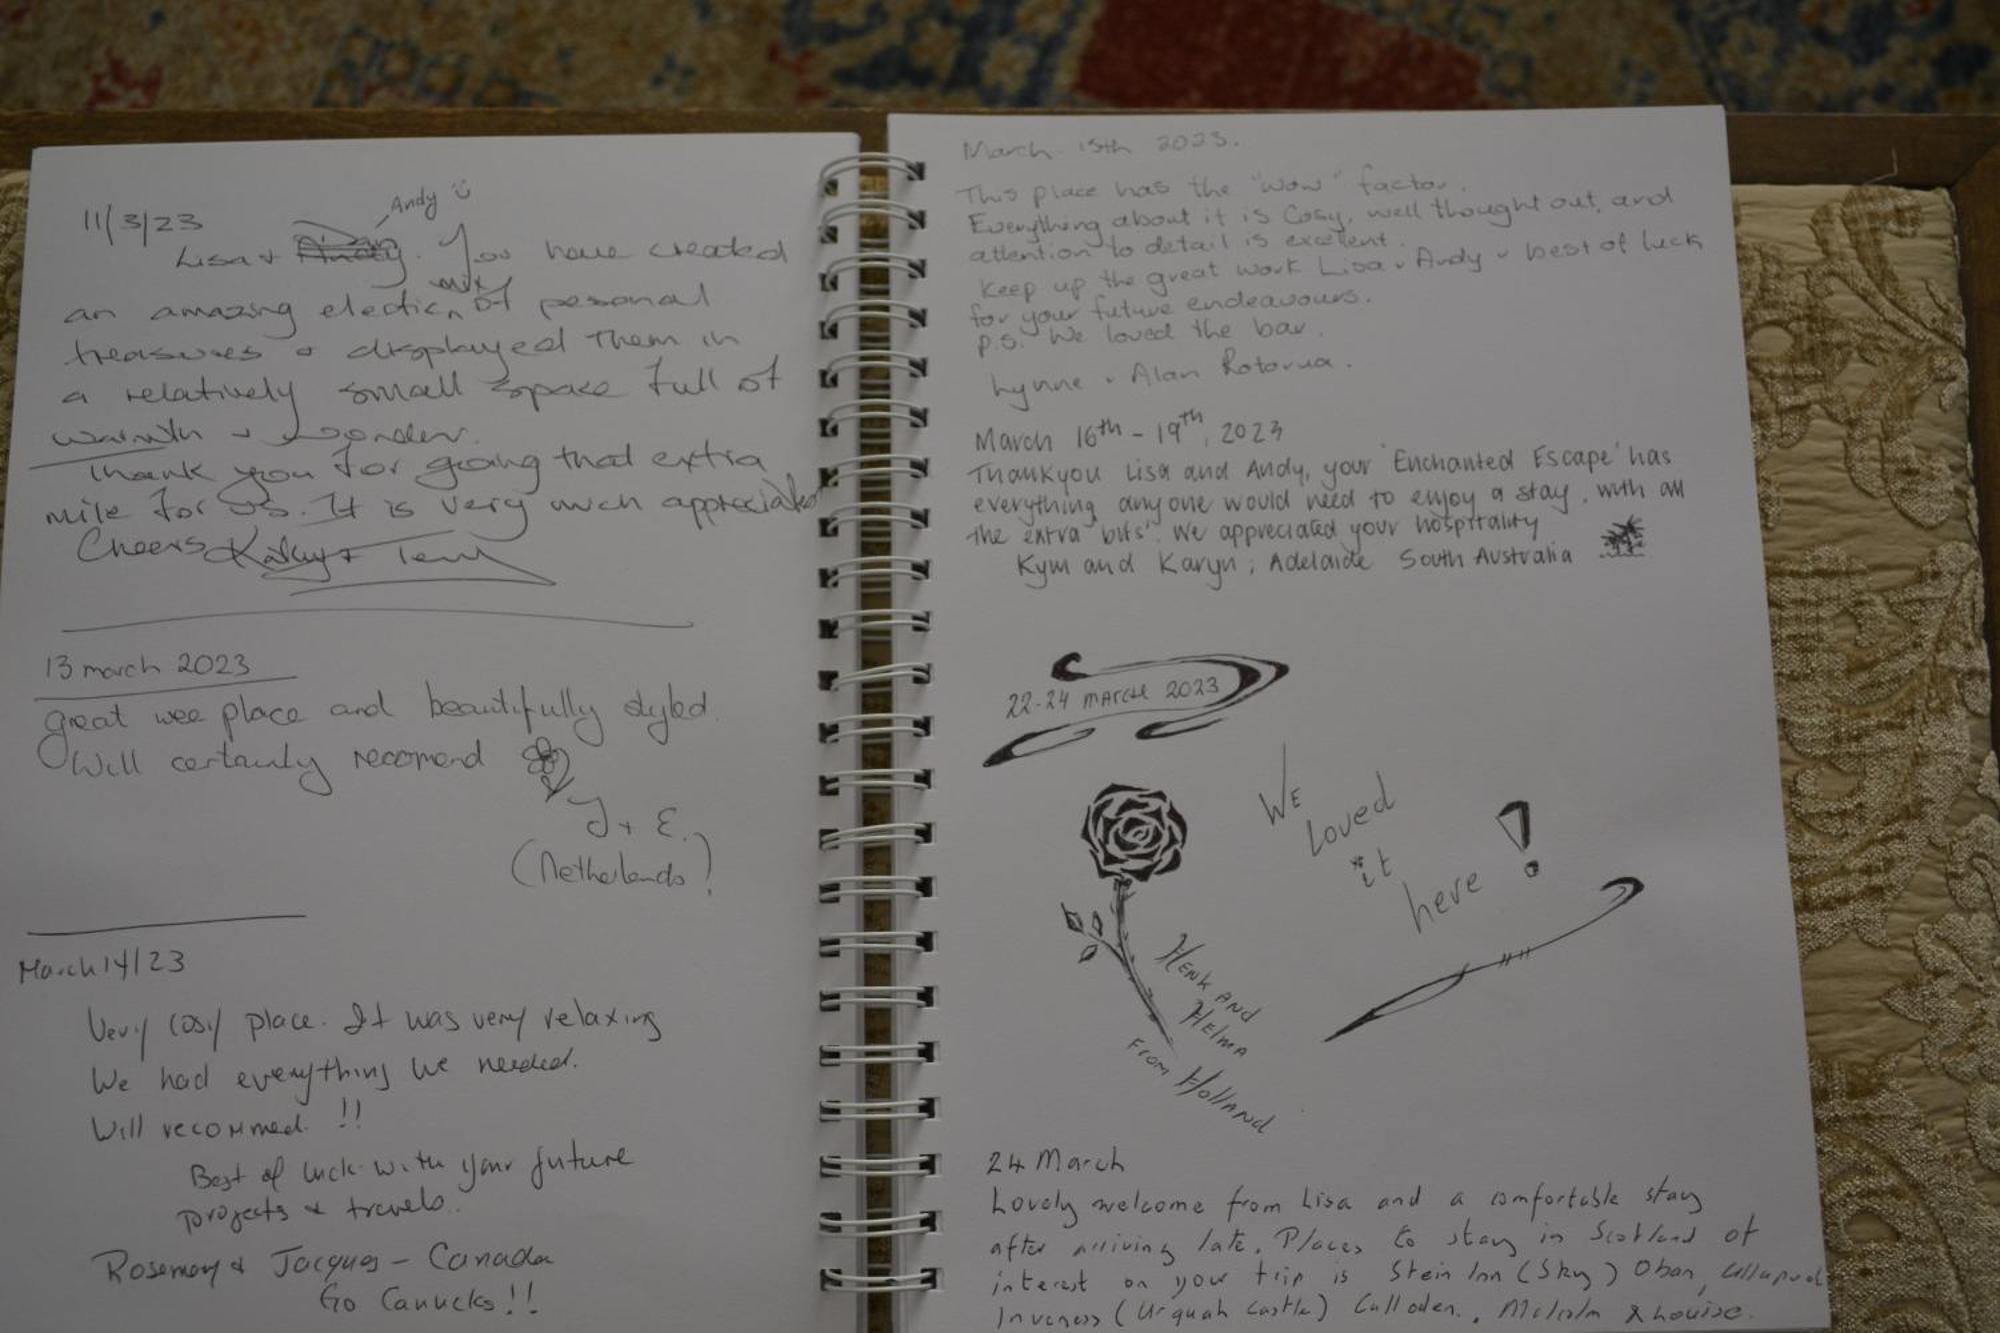 11/3/23
Andy
Lisa + Andy. You have created
an amazing electic mix of pesonal
treasures + displayed them in
a relatively small space full of
warmth + wonder.
Thank you for going that extra
mile for us. It is very much appreciated
Cheers Kathy + Terry
13 march 2023
great wee place and beautifully styled.
Will certainly recomend
J + E.
(Netherlands)
March 14/23
Very cosy place. It was very relaxing
We had everything we needed.
Will recommed. !!
Best of luck with your future
projects & travels.
Rosemary & Jacques - Canada
Go Canucks!!
March 15th 2023.
This place has the "Wow" factor.
Everything about it is Cosy, well thought out, and
attention to detail is excellent.
Keep up the great work Lisa + Andy + best of luck
for your future endeavours.
P.S. We loved the bar.
Lynne + Alan Rotorua.
March 16th - 19th, 2023
Thankyou Lisa and Andy, your 'Enchanted Escape' has
everything anyone would need to enjoy a stay, with all
the extra 'bits'. We appreciated your hospitality
Kym and Karyn, Adelaide South Australia
22-24 MARCH 2023
WE
loved
it
here !
HENK AND
HELMA
FROM HOLLAND
24 March
Lovely welcome from Lisa and a comfortable stay
after arriving late. Places to stay in Scotland of
interest on your trip is Stein Inn (Sky) Oban, Ullapool
Inverness (Urquah Castle) Culloden., Malcolm & Louise.